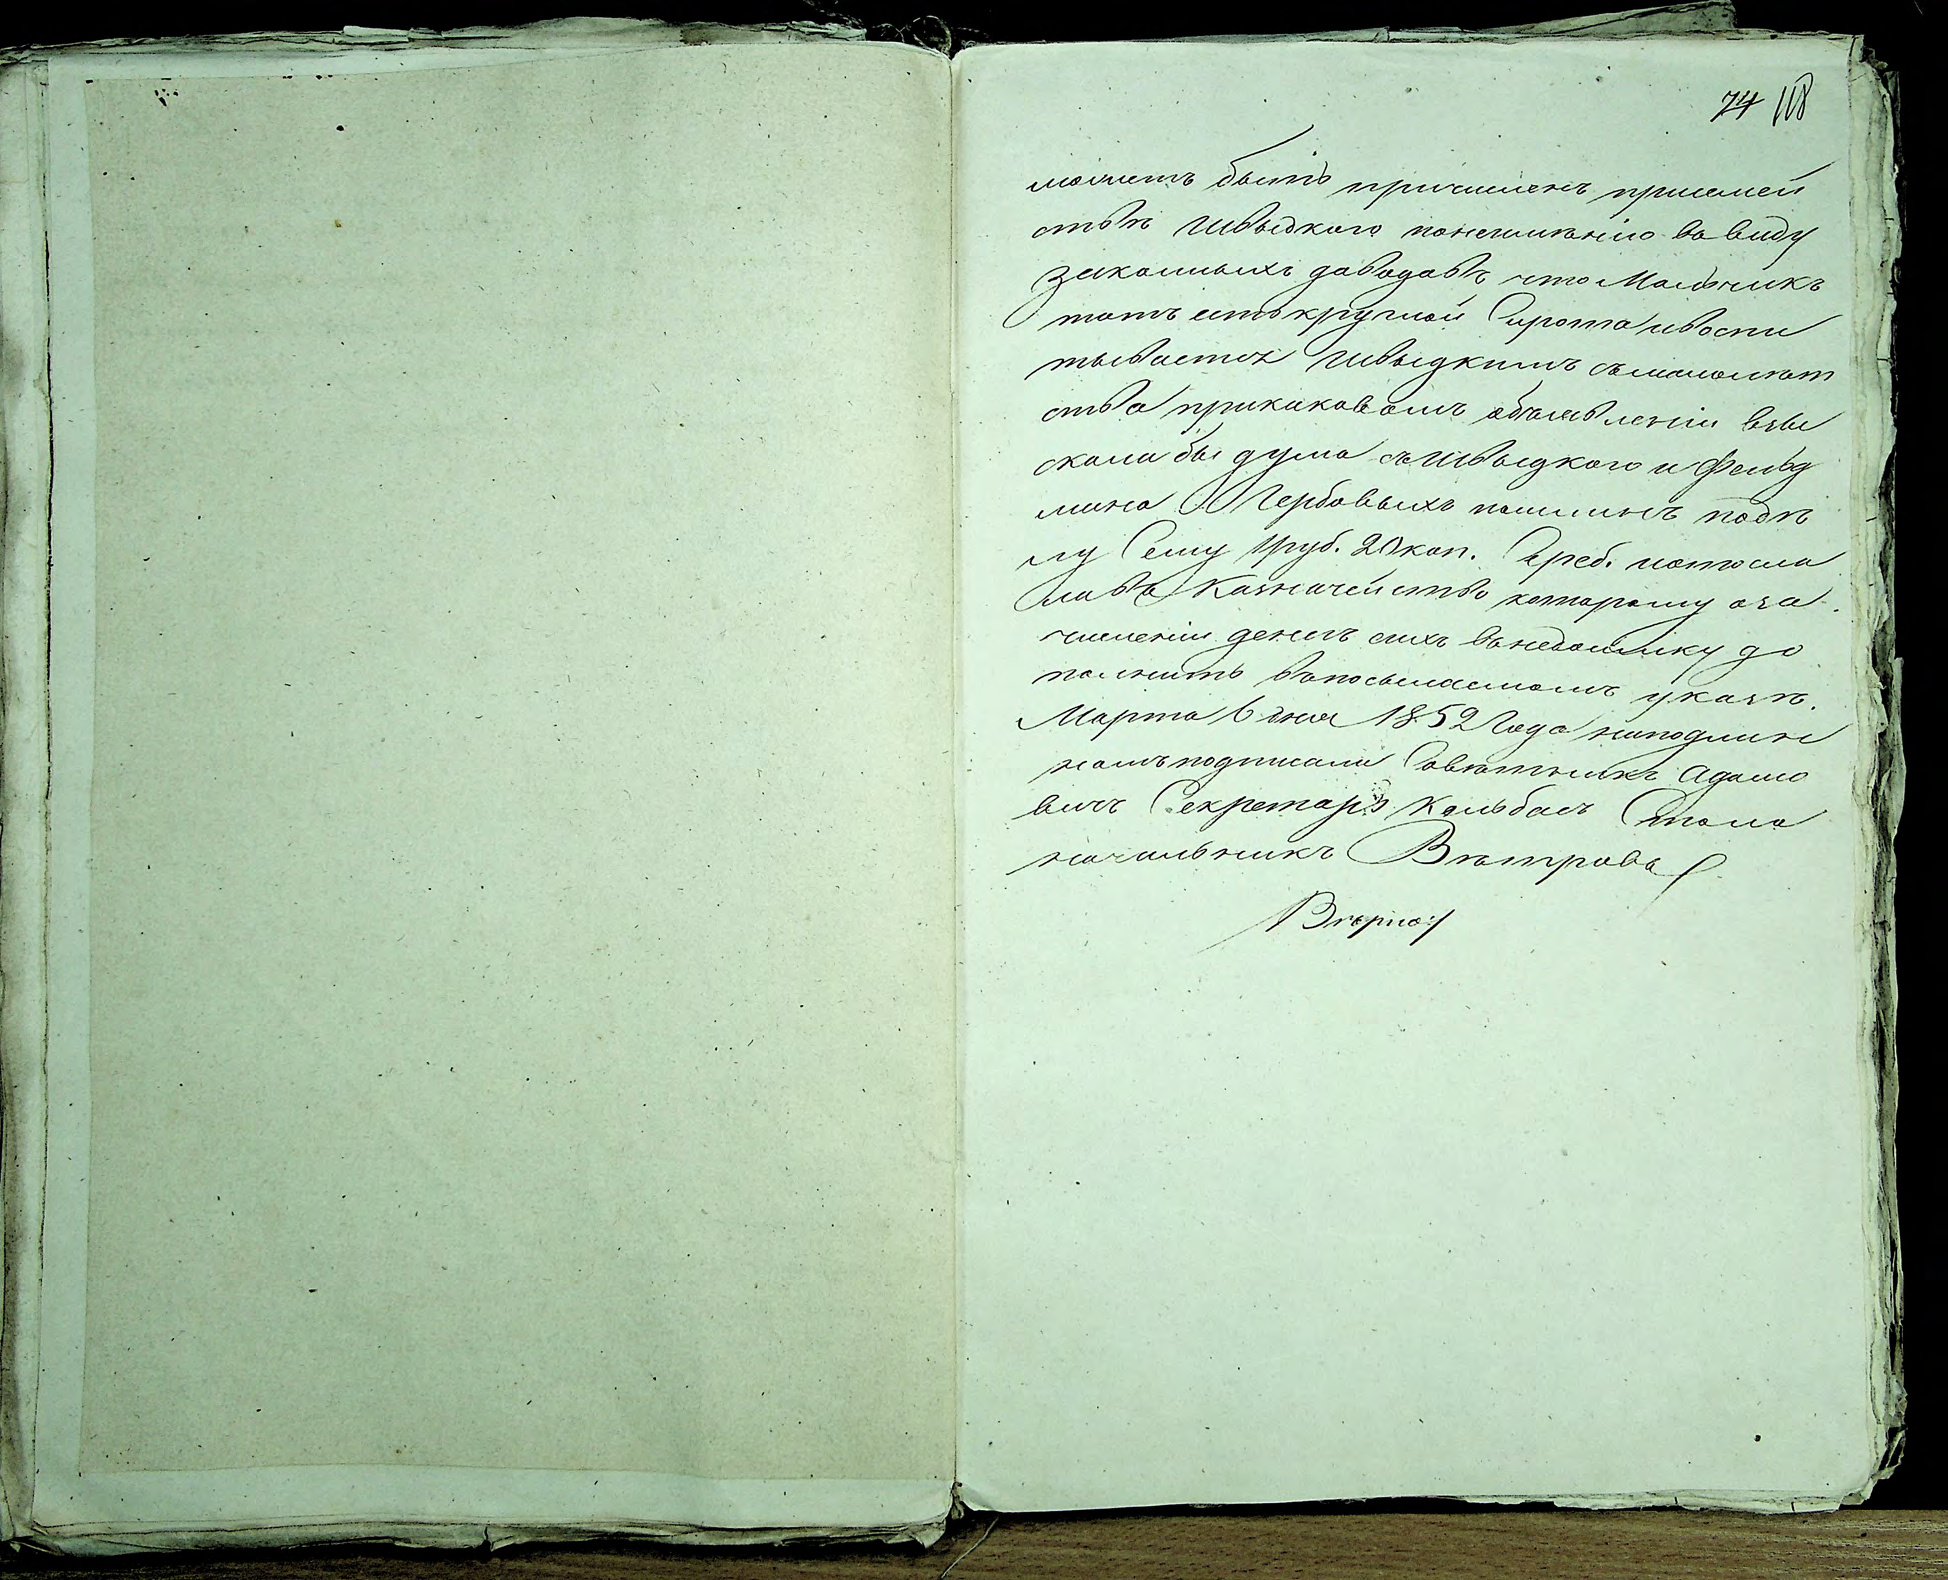 74 118
можетъ быть причисленъ присемей
ствѣ Швыдкого понеимѣнію ввиду
законныхъ доводовъ что Мальчикъ
тотъ есть круглой Сирота ивоспи
тывается Швыдкимъ съмалолѣт
ства прикаковомъ объявленіи взы
скала бы дума съШвыдкого и Фельд
мана Гербовыхъ пошлинъ подѣ
лу Сему 1 руб. 20 коп. Сереб. иотосла
лавъ Казначейство которому оза
численіи денегъ сихъ внедоимку до
полнить впосылаемомъ указѣ.
Марта 6 дня 1852 Года наподлин
номъ подписали Совѣтникъ Адамо
вичъ Секретарь Кольбасъ Столо
начальникъ Вѣтровъ
Вѣрно: